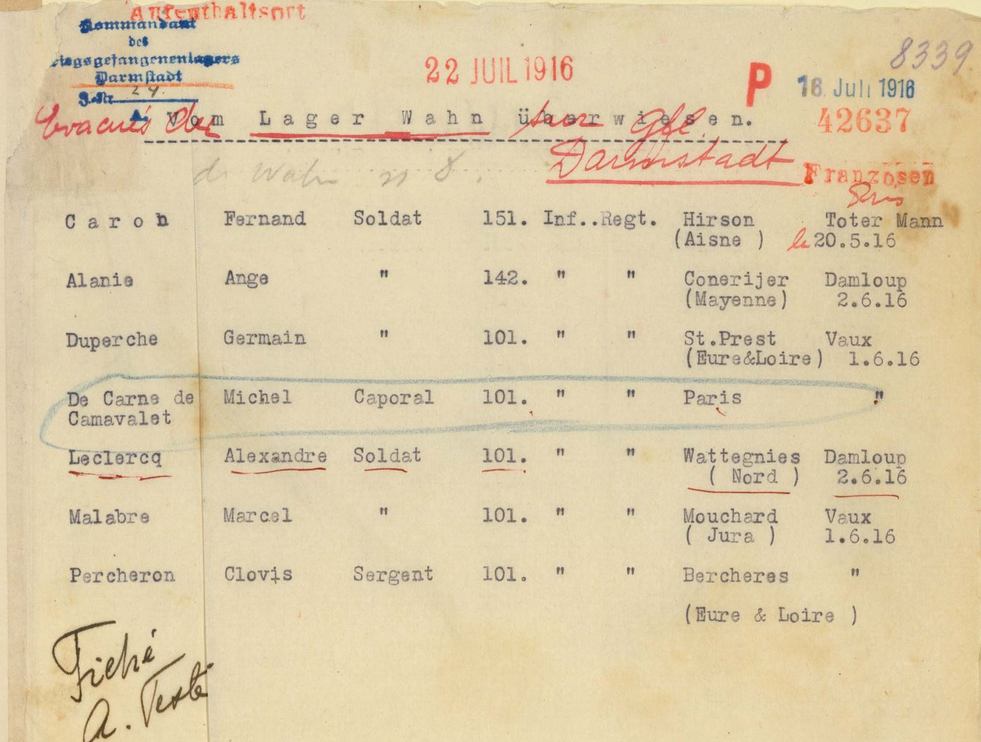 Aufenthaltsort
Kommandant
des
iegsgefangenenlagers
Darmstadt
J.Nr. 29.
8339
22 JUIL 1916
P
16. Juli 1916
42637
Vom Lager Wahn überwiesen.
Evacués
sur Gfl.
Darmstadt
Franzosen
de Wahn
Caron Fernand Soldat 151. Inf..Regt. Hirson Toter Mann
(Aisne ) le 20.5.16
Alanie Ange " 142. " " Conerijer Damloup
(Mayenne) 2.6.16
Duperche Germain " 101. " " St.Prest Vaux
(Eure&Loire) 1.6.16
De Carne de Michel Caporal 101. " " Paris "
Camavalet
Leclercq Alexandre Soldat 101. " " Wattegnies Damloup
( Nord ) 2.6.16
Malabre Marcel " 101. " " Mouchard Vaux
( Jura ) 1.6.16
Percheron Clovis Sergent 101. " " Bercheres "
(Eure & Loire )
Fiché
A. Testé